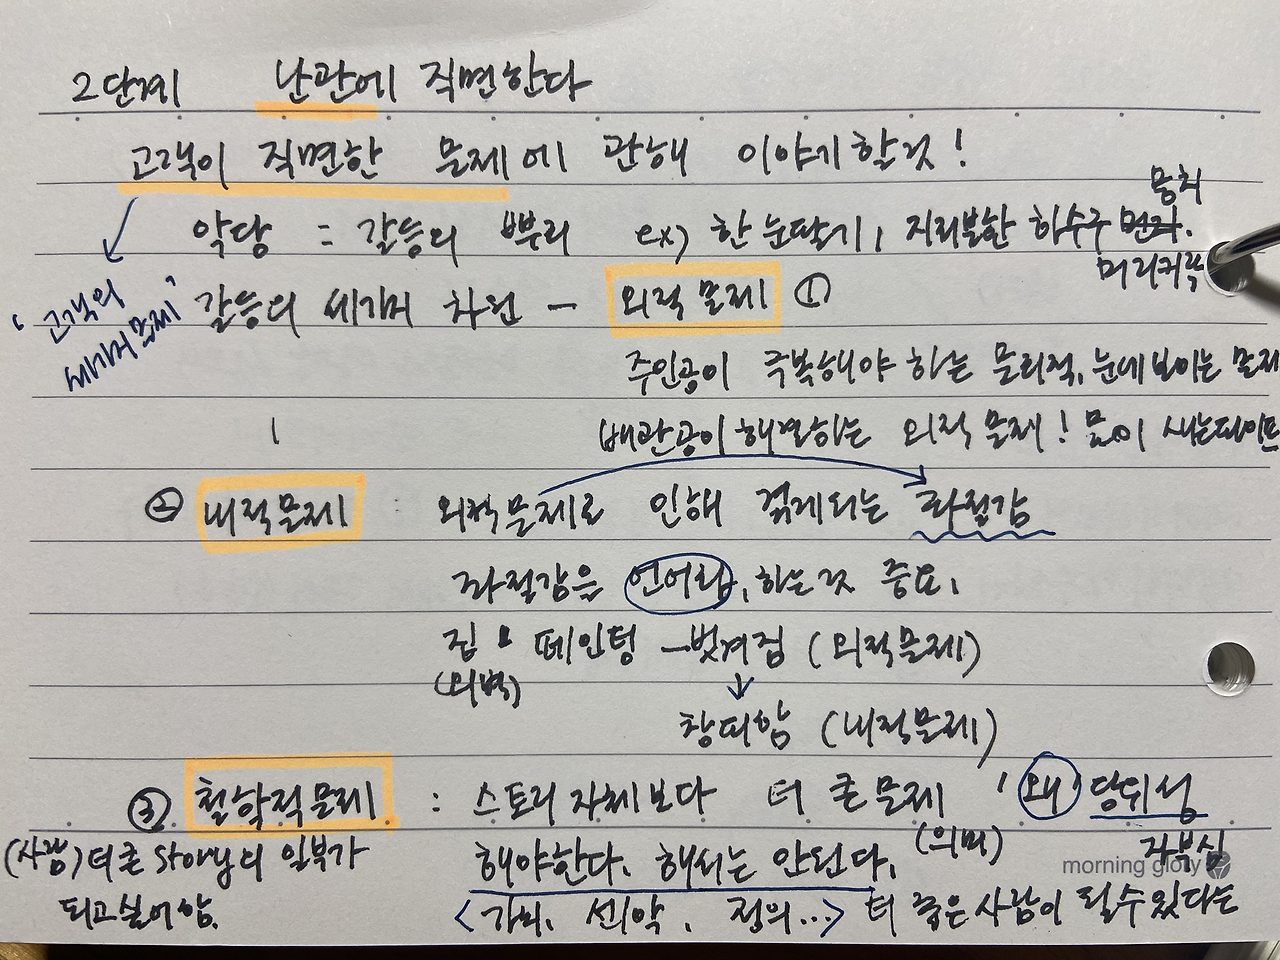 2단계 난관에 직면한다
고객이 직면한 문제에 관해 이야기할것!
악당 = 갈등의 뿌리 ex) 한눈팔기, 지리분한 하수구 뭉치
머리카락
'고객의
세가지 문제'
갈등의 세가지 차원 - 외적 문제 ①
주인공이 극복해야 하는 물리적, 눈에 보이는 문제
배관공이 해결하는 외적 문제! 물이 새는 파이프
② 내적문제 외적문제로 인해 겪게되는 좌절감
좌절감을 언어화, 하는것 중요,
집 페인팅 - 벗겨짐 (외적문제)
(외벽)
창피함 (내적문제)
③ 철학적문제 : 스토리 자체보다 더 큰 문제 '왜' 당위성
(의미) 자부심
(사람) 더 큰 story의 일부가
되고싶어함.
해야한다. 해서는 안된다.
<가치, 선/악, 정의...> 더 좋은 사람이 될수있다는
morning glory